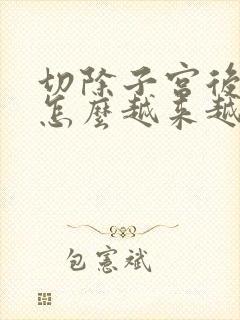 切除子宮後
怎麼越來越
包憲斌